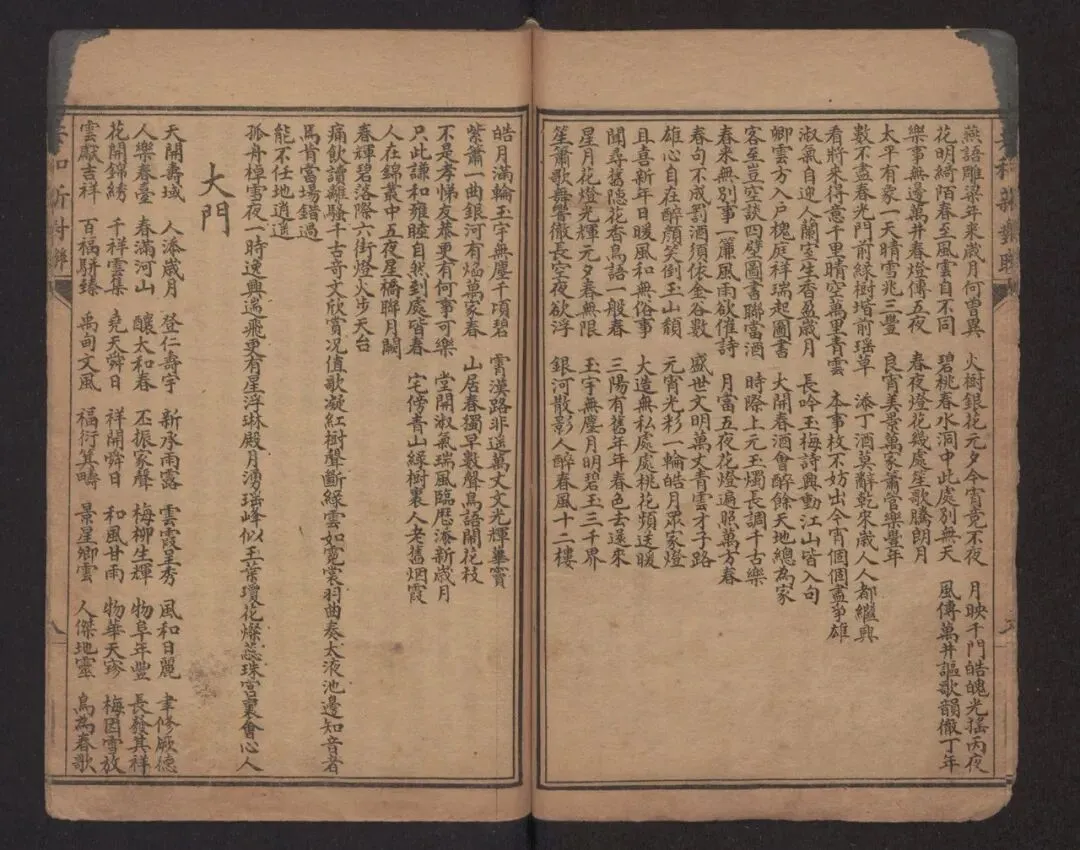 燕語雕梁年來歲月何曾異　火樹銀花元夕今宵竟不夜　月映千門皓魄光搖丙夜
花明綺陌春至風雲自不同　碧桃春水洞中此處別無天　風傳萬井謳歌韻徹丁年
樂事無邊萬井春燈傳五夜　春夜燈花幾處笙歌騰朗月
太平有象一天晴雪兆三豐　良宵美景萬家簫管樂豐年
數不盡春光門前綠樹堦前瑤草　添丁酒莫辭乾來歲人人都繼興
看將來得意千里晴空萬里青雲　本事枚不妨出今宵個個盡爭雄
淑氣自迎人蘭室生香盈歲月　長吟玉梅詩興動江山皆入句
卿雲方入戶槐庭祥瑞起圖書　大開春酒會醉餘天地總為家
客至豈空談四壁圖書聯富酒　時際上元玉燭長調千古樂
春來無別事一簾風雨欲催詩　月當五夜花燈遍照萬方春
春句不成罰酒須依金谷數　盛世文明萬丈青雲才子路
雄心自在醉顏笑倒玉山頹　元宵光彩一輪皓月眾家燈
且喜新年日暖風和無俗事　大造無私處處桃花頻送暖
聞尋舊隱花香鳥語一般春　三陽有舊年年春色去還來
星月花燈光輝元夕春無限　玉宇無塵月明碧玉三千界
笙簫歌舞響徹長空夜欲浮　銀河散影人醉春風十二樓
皓月滿輪玉宇無塵千頃碧　霄漢路非遥萬丈文光輝華竇
紫簫一曲銀河有焰萬家春　山居春獨早數聲鳥語開花枝
不是孝悌友恭更有何事可樂　堂開淑氣瑞風臨歷添新歲月
只此謙和雍睦自然到處皆春　宅傍青山綠樹裏人老舊烟霞
人在錦叢中五夜星橋聯月闕
春輝碧落際六街燈火步天台
痛飲讀離騷千古奇文欣賞況值歌凝紅樹聲斷綠雲如霓裳羽曲奏太液池邊知音者
焉肯當場錯過
能不任地逍遥
孤舟棹雪夜一時逸興遄飛更有星浮琳殿月湧瑶峰似玉葉瓊花燦蕊珠宮裏會心人
大門
天開壽域　人添歲月　登仁壽宇　新承雨露　雲霞呈秀　風和日麗　聿修厥德
人樂春臺　春滿河山　釀太和春　丕振家聲　梅柳生輝　物阜年豐　長發其祥
花開錦綉　千祥雲集　堯天舜日　祥開舜日　和風甘雨　物華天寶　梅因雪放
雲獻吉祥　百福駢臻　禹甸文風　福衍箕疇　景星卿雲　人傑地靈　鳥為春歌